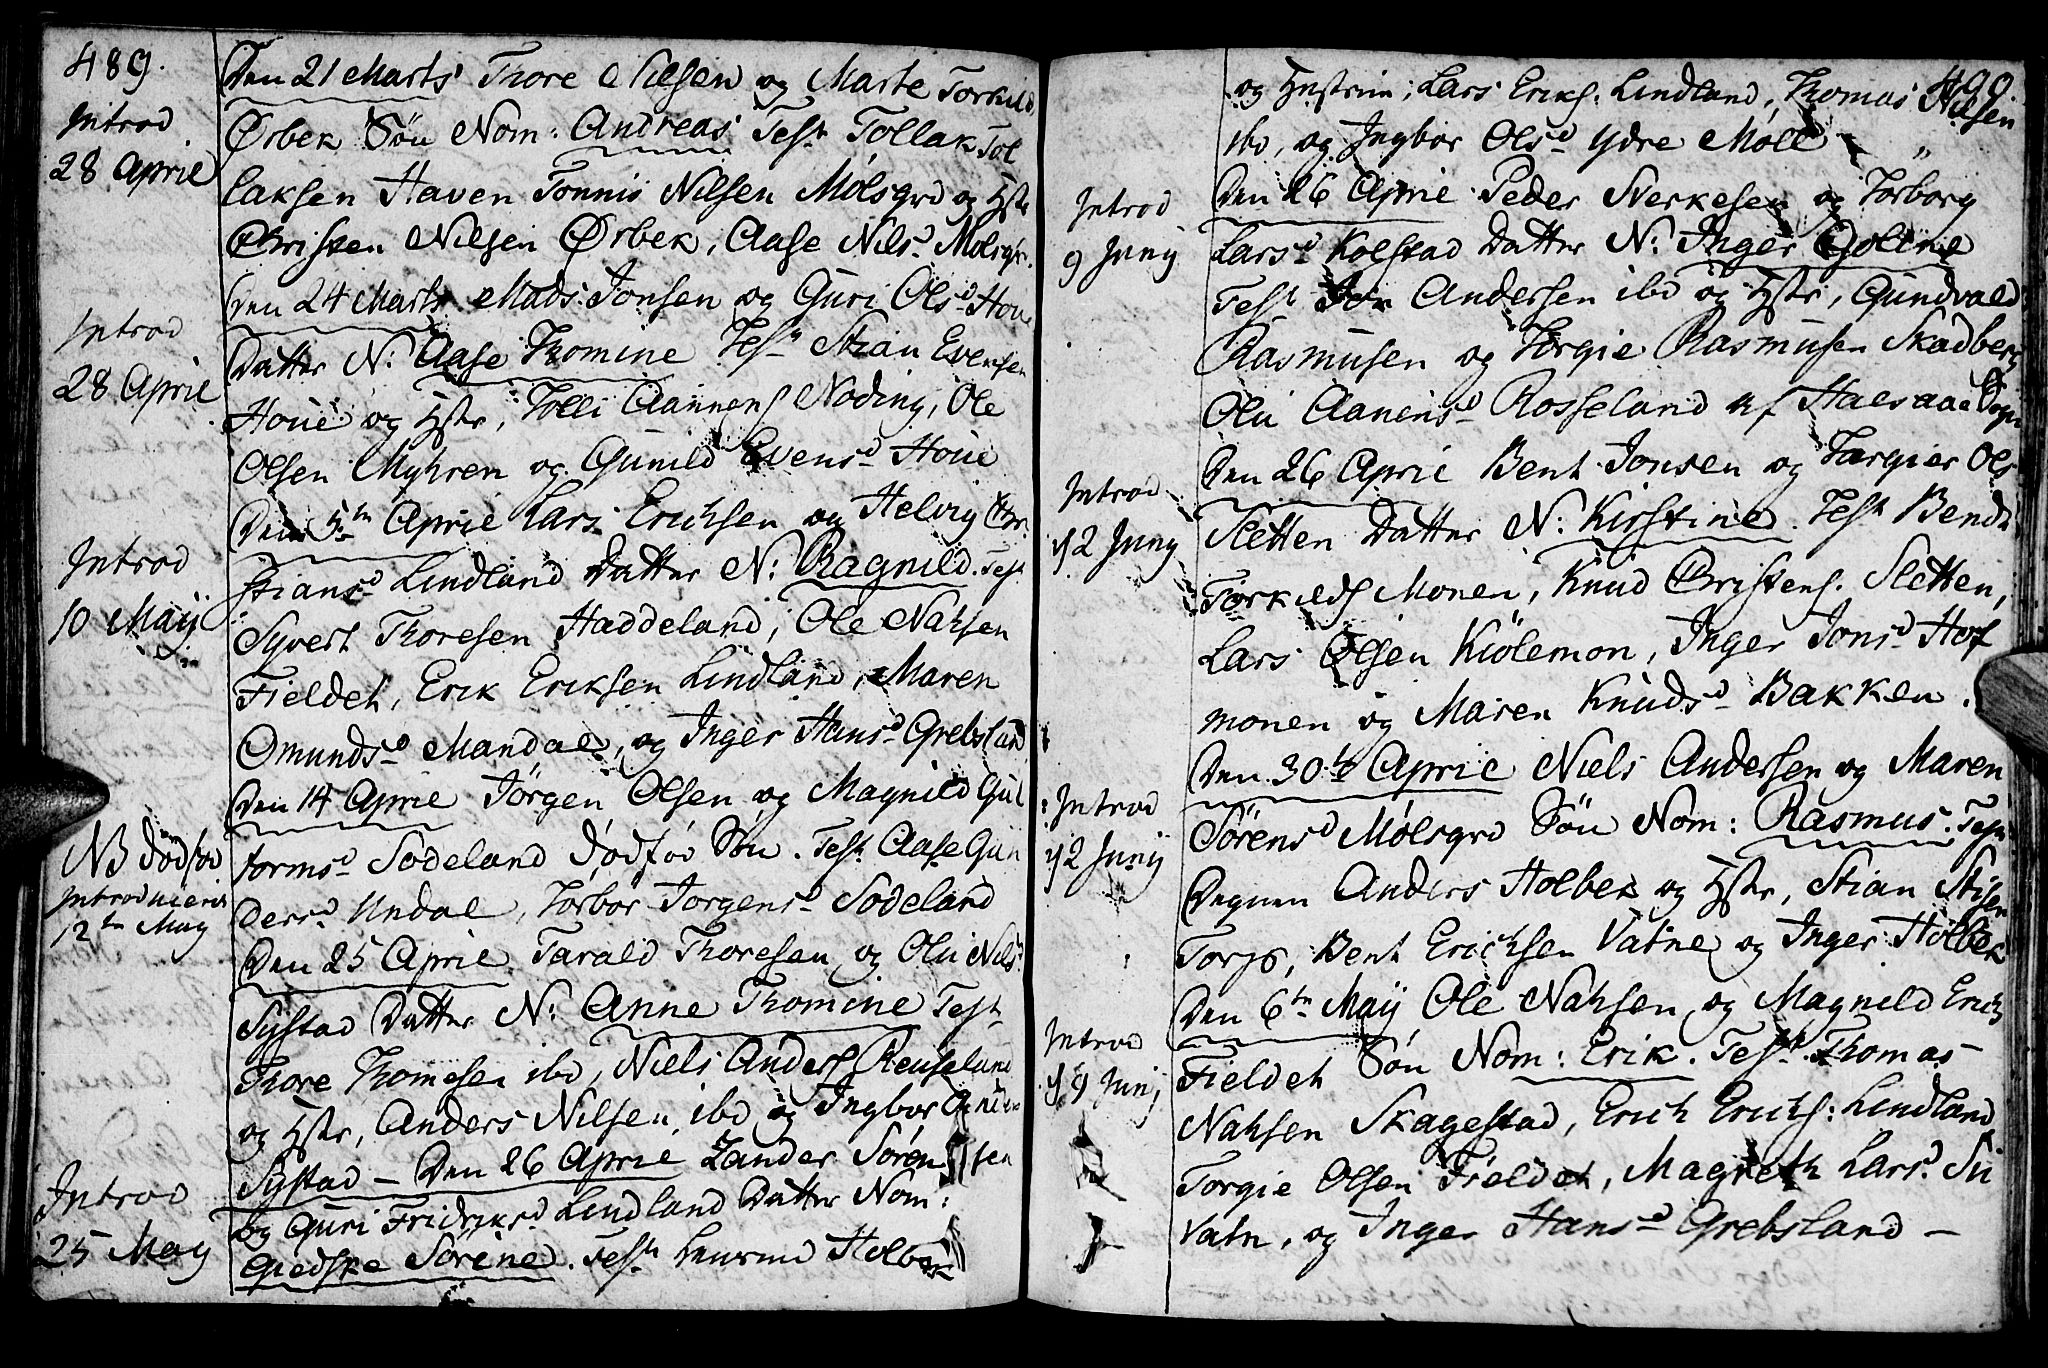 489.
Introd
28 April
Den 21 Marts Thore Nilsen og Marte Torkild
Ørbek Søn Nom: Andreas Test Tollak Tol
laksen Haven Tønnis Nilsen Mølsgrd og Hstr
Christen Nilsen Ørbek, Aase Nilsd Mølsgr.
Introd
28 April
Den 24 Marts Mads Jonsen og Guri Olsd Houe
Datter N: Aase Thomine Test Stian Evensen
Houe og Hstr, Tolli Aannens Noding, Ole
Olsen Myhren og Gunild Evensd Houe
Introd
10 Maÿ
Den 5tn April Lars Erichsen og Helvig Chri
stiansd Lindland Datter N: Ragnild. Test
Syvert Thoresen Haddeland, Ole Nahsen
Fieldet, Erik Eriksen Lindland, Maren
Omundsd Mandal, og Inger Hansd Grebsland
NB dødfød
Introduceris
12tn May
Den 14 April Jørgen Olsen og Magnild Gut
tormsd Sodeland dødfød Søn. Test Aase Gun
dersd Undal, Torbor Jorgensd Sodeland
Den 25 April Tarald Thoresen og Oluʼ Nilsd
Systad Datter N: Anne Thomine Test
Thore Thomesen ibd, Niels Anders Reuseland
og Hstr, Anders Nilsen ibd og Ingbor
Introd
25 May
Systad – Den 26 April Zander Sørensen
og Guri Fridriksd Lindland Datter Nom:
Giedske Sørine. Test Holbek
490.
og Hustrue; Lars Eriks: Lindland, Thomas Nilsen
ibd, og Ingbor Olsd Ydre Møll
Introd
9 Junÿ
Den 26 April Peder Nerkesen og Torborg
Larsd Kolstad Datter N: Inger Goline
Test Jon Andersen ibd og Hstr, Gundvald
Rasmusen og Torgie Rasmusen Skadberg
Olu Aanensd Rosseland af Halsaae Sogn
Introd
12 Juny
Den 26 April Bent Jonsen og Targier Ols
Sletten Datter N: Kirstine. Test Bendt
Torkilds Monen, Knud Christens. Sletten,
Lars Olsen Kiölemon, Inger Jonsd Hof
monen og Maren Knudsd Bakken.
Introd
12 Junÿ
Den 30te April Niels Andersen og Maren
Sörensd Mölsgrd Søn Nom: Rasmus. Test
Degnen Anders Holbek og Hstr, Stian Stisen
Torp, Bent Erichsen Vatne og Inger Holbek
Introd
19 Junÿ
Den 6tn Maÿ Ole Nahsen og Magnild Erichs
Fieldet Søn Nom: Erik. Test Thomas
Nahsen Skagestad, Erich Erichs: Lindland
Torgie Olsen Fieldet, Magreth Larsd. Su
Vatn, og Inger Hansd Grebsland –